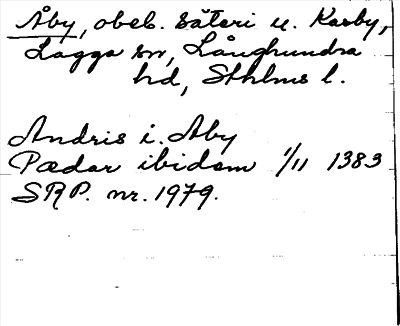 Åby, obeb. säteri u. Kasby,
Lagga sn, Långhundra
hd, Sthlms l.
Andris i. Aby
Pædar ibidem 1/11 1383
SRP. nr. 1979.